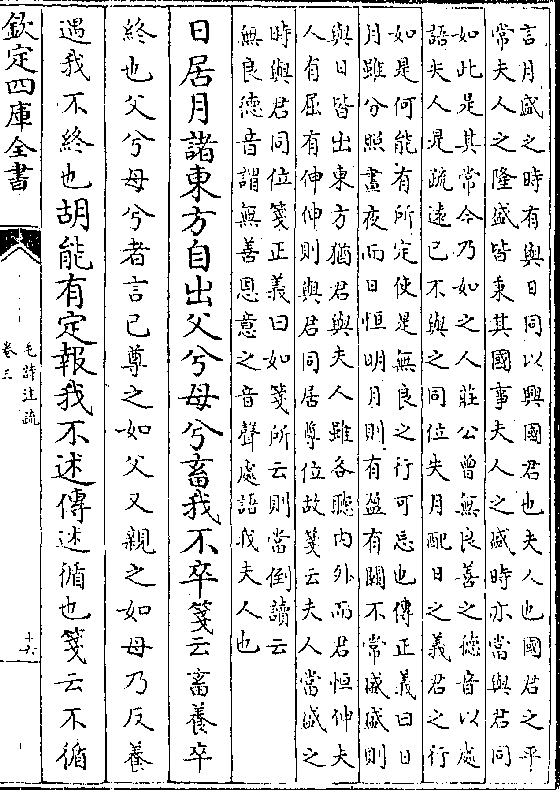 言月盛之時有與日同以興國君也夫人也國君之平
常夫人之隆盛皆秉其國事夫人之盛時亦當與君同
如此是其常今乃如之人莊公曾無良善之德音以處
語夫人是疏遠已不與之同位失月配日之義君之行
如是何能有所定使是無良之行可忌也傳正義曰日
月雖分照晝夜而日恒明月則有盈有闕不常盛盛則
與日皆出東方猶君與夫人雖各聽內外而君恒伸夫
人有屈有伸伸則與君同居尊位故箋云夫人當盛之
時與君同位箋正義曰如箋所云則當倒讀云
無良德音謂無善恩意之音聲處語我夫人也
日居月諸東方自出父兮母兮畜我不卒箋云畜養卒
終也父兮母兮者言己尊之如父又親之如母乃反養
遇我不終也胡能有定報我不述傳述循也箋云不循
欽定四庫全書
毛詩注疏
卷三
十六